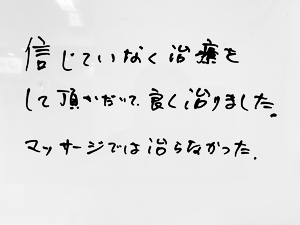 信じていなく治療を
して頂かだいて、良く治りました。
マッサージでは治らなかった.